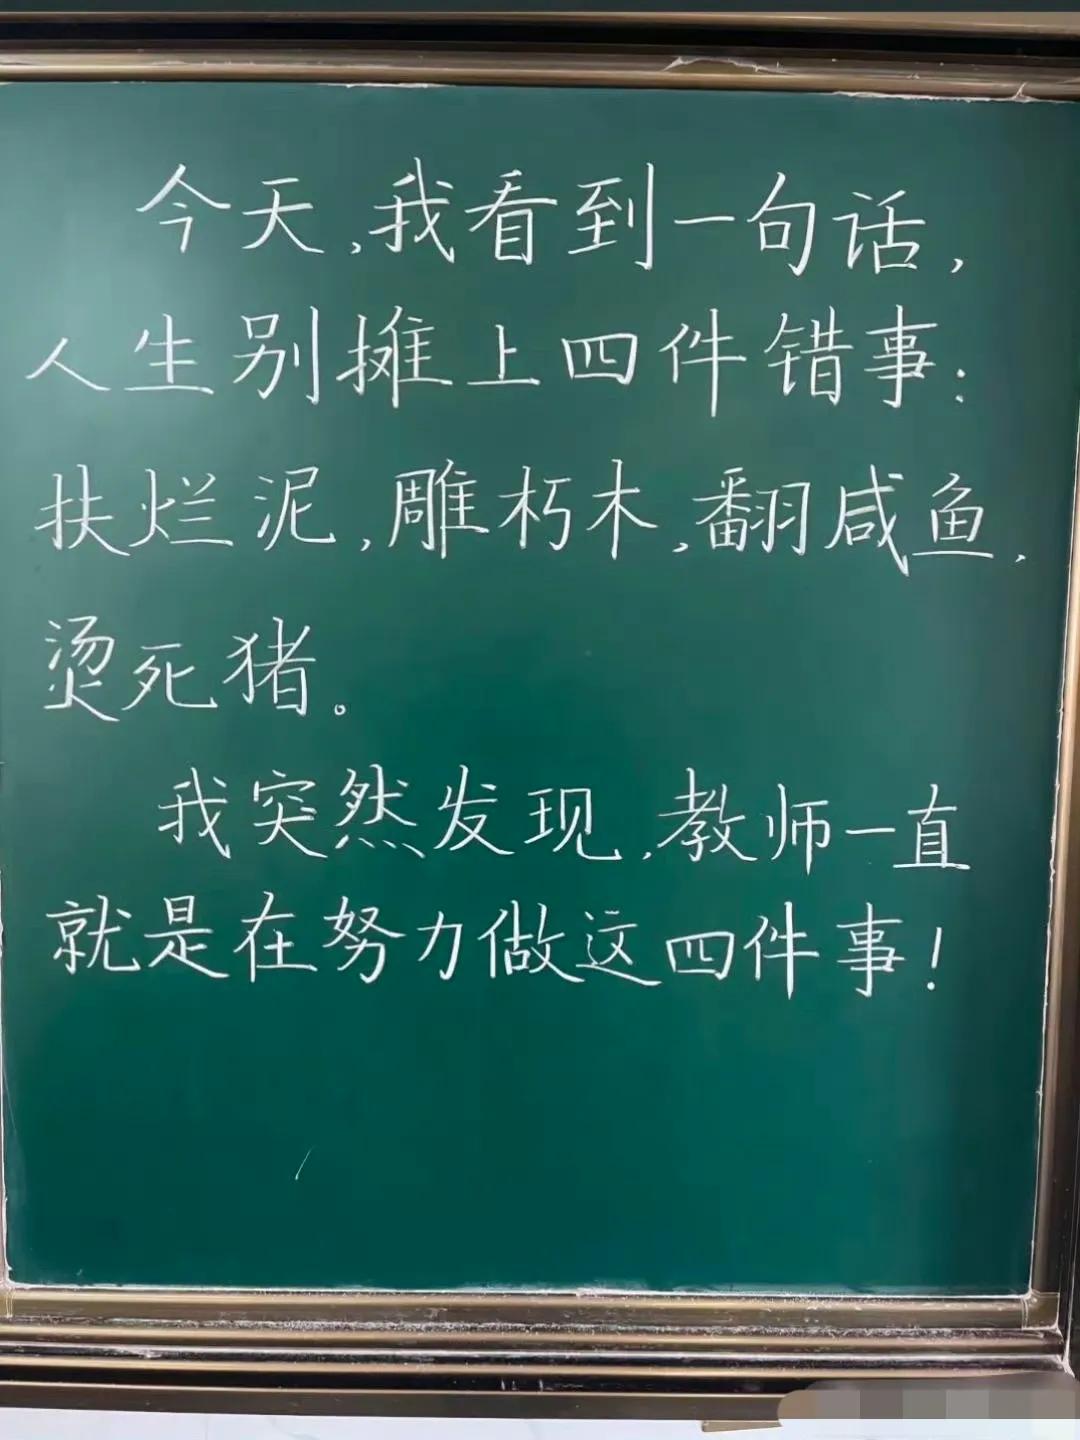 今天,我看到一句话,
人生别摊上四件错事:
扶烂泥,雕朽木,翻咸鱼,
烫死猪。
我突然发现,教师一直
就是在努力做这四件事!